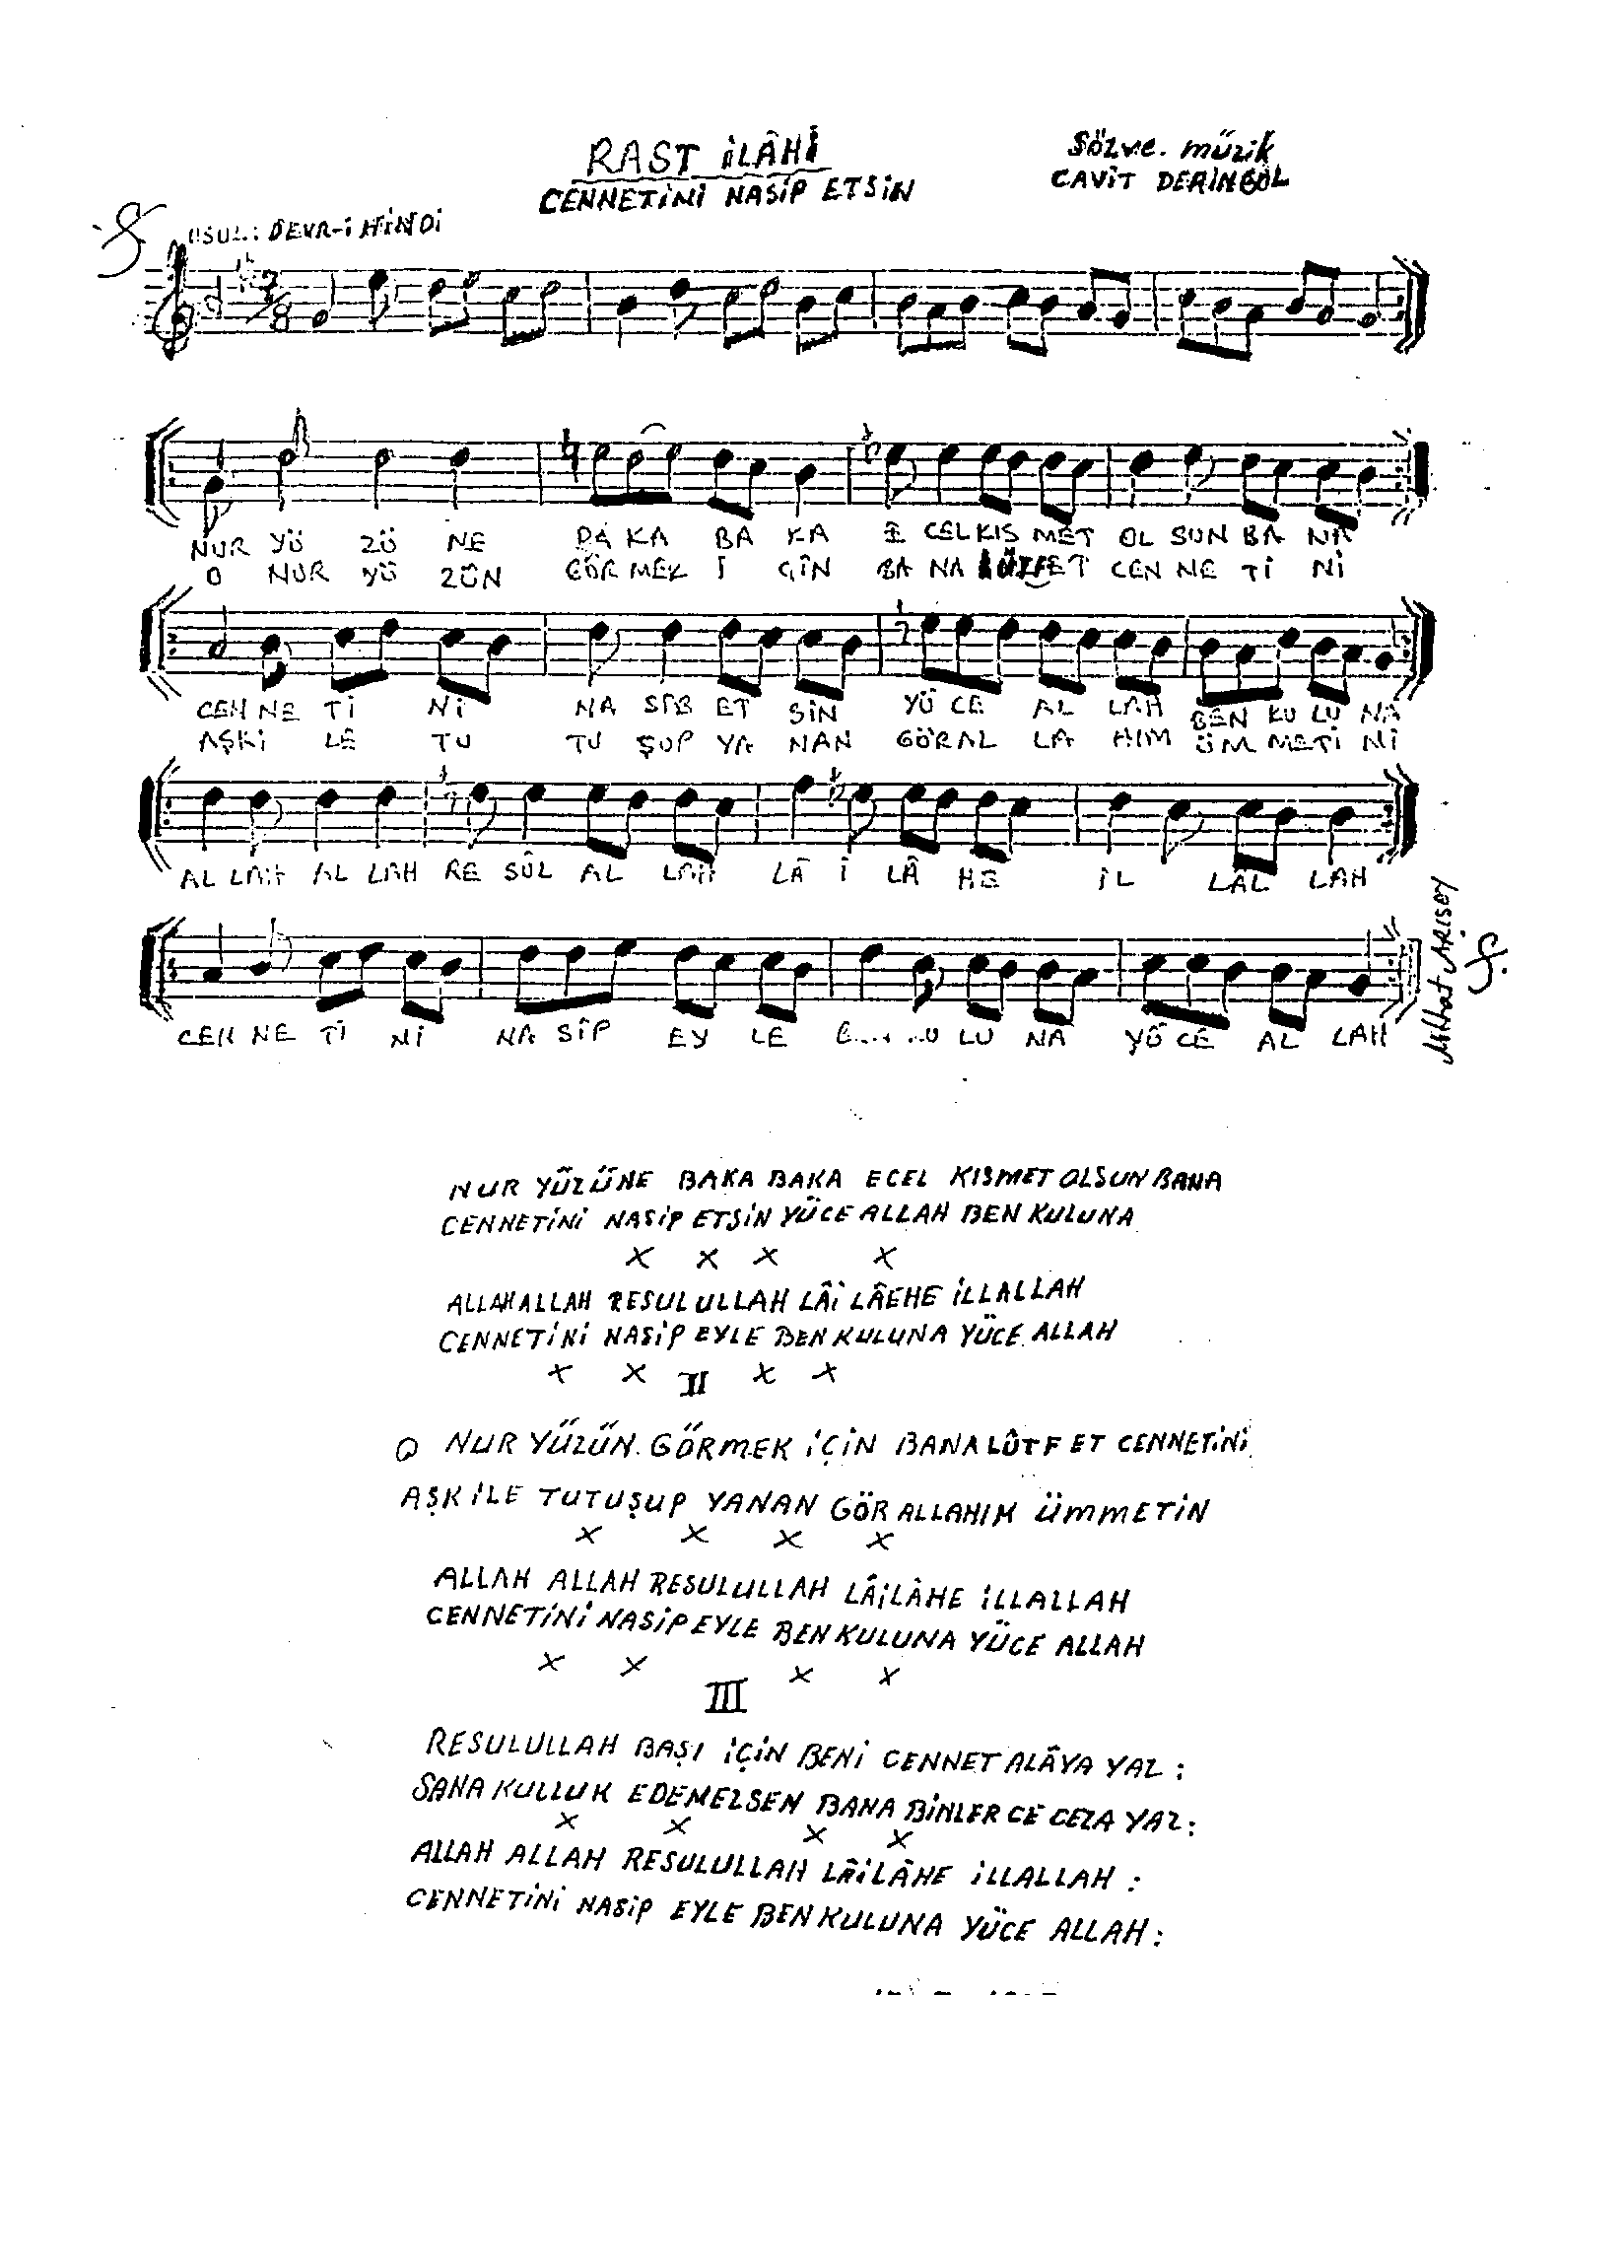 RAST İLÂHİ
CENNETİNİ NASİP ETSİN
Söz ve. müzik
CAVİT DERİNGÖL
USUL: DEVR-İ HİNDİ
7
8
NUR YÜ ZÜ NE BA KA BA KA E CEL KIS MET OL SUN BA NA
O NUR YÜ ZÜN GÖR MEK İ ÇİN BA NA LÛTFET CEN NE Tİ Nİ
CEN NE Tİ Nİ NA SİB ET SİN YÜ CE AL LAH BEN KU LU NA
AŞKİ LE TU TU ŞUP YA NAN GÖR AL LA HIM ÜM METİ Nİ
AL LAH AL LAH RE SÛL AL LAH LÂ İ LÂ HE İL LÂL LAH
CEN NE Tİ Nİ NA SİP EY LE LU NA YÜ CE AL LAH
Mithat ARISOY
NUR YÜZÜNE BAKA BAKA ECEL KISMET OLSUN BANA
CENNETİNİ NASİP ETSİN YÜCE ALLAH BEN KULUNA
X X X X
ALLAH ALLAH RESUL ULLAH LÂİ LÂEHE İLLALLAH
CENNETİNİ NASİP EYLE BEN KULUNA YÜCE ALLAH
X X II X X
O NUR YÜZÜN. GÖRMEK İÇİN BANA LÛTF ET CENNETİNİ
AŞK İLE TUTUŞUP YANAN GÖR ALLAHIM ÜMMETİN
X X X X
ALLAH ALLAH RESULULLAH LÂİLÂHE İLLALLAH
CENNETİNİ NASİP EYLE BEN KULUNA YÜCE ALLAH
X X X X
III
RESULULLAH BAŞI İÇİN BENİ CENNET ALÂYA YAZ :
SANA KULLUK EDEMEZSEN BANA BİNLER CE CEZA YAZ :
X X X X
ALLAH ALLAH RESULULLAH LÂİLÂHE İLLALLAH :
CENNETİNİ NASİP EYLE BEN KULUNA YÜCE ALLAH :